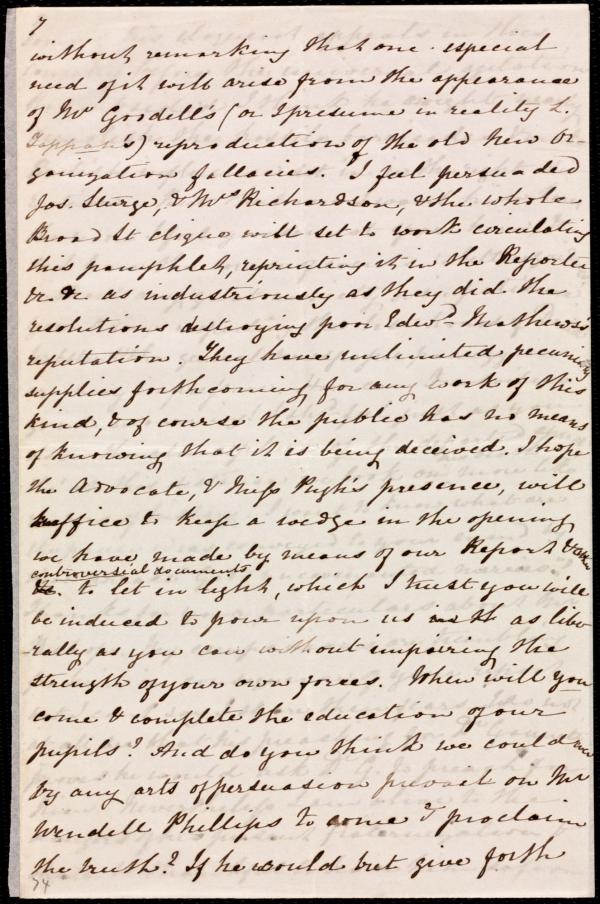 7
without remarking that one especial
need of it will arise from the appearance
of Mr Goodell's (or I presume in reality L.
Tappan's) reproduction of the old New Or-
ganization fallacies. I feel persuaded
Jos. Sturge, & Mrs Richardson, & the whole
Broad St clique will set to work circulating
this pamphlet, reprinting it in the Reporter
&c &c as industriously as they did the
resolutions destroying poor Edwd Mathews's
reputation. They have unlimited pecuniary
supplies forthcoming for any work of this
kind, & of course the public has no means
of knowing that it is being deceived. I hope
the Advocate, & Miss Pugh's presence, will
suffice to keep a wedge in the opening
we have made by means of our Report & other
controversial documents
&c. to let in light, which I trust you will
be induced to pour upon us as libe-
rally as you can without impairing the
strength of your own forces. When will you
come & complete the education of our
pupils? And do you think we could
by any arts of persuasion prevail on Mr
Wendell Phillips to come & proclaim
the truth? If he would but give forth
74